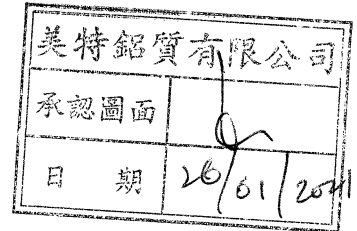 美特鋁質有限公司
承認圖面
日 期 26/01/2021